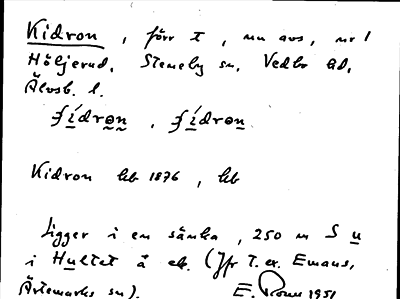 Kidron, förr t, nu avs, nr 1
Höljerud, Steneby sn, Vedbo hd,
Älvsb. l.
Kidron hb 1876, hb
Ligger i en sänka, 250 m S u
i Hultet å ek. (Jfr t. ex. Emaus,
Ärtemarks sn). E. Brown 1951